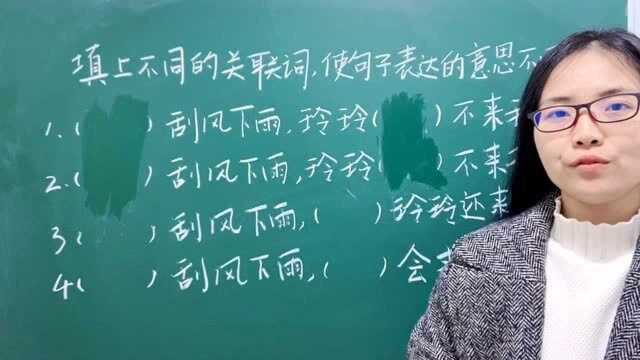 填上不同的关联词,使句子表达的意思不
1.( )刮风下雨,玲玲( )不来
2.( )刮风下雨,玲玲( )不来
3( )刮风下雨,( )玲玲还来
4( )刮风下雨,( )会